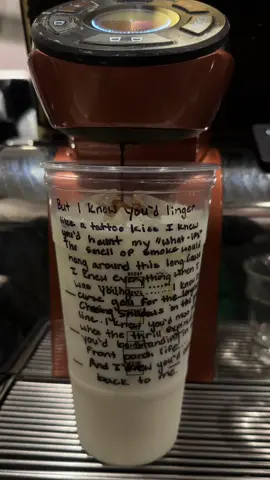 But I knew you'd linger
like a tattoo kiss I knew
you'd haunt my "what-ifs"
The smell of smoke would
hang around this long
I knew everything when I
was young I knew
curse you for the
chasing shadows in the
line. I knew you'd miss
when the thrill
you'd be standing
front porch li
And I knew you'd
back to me